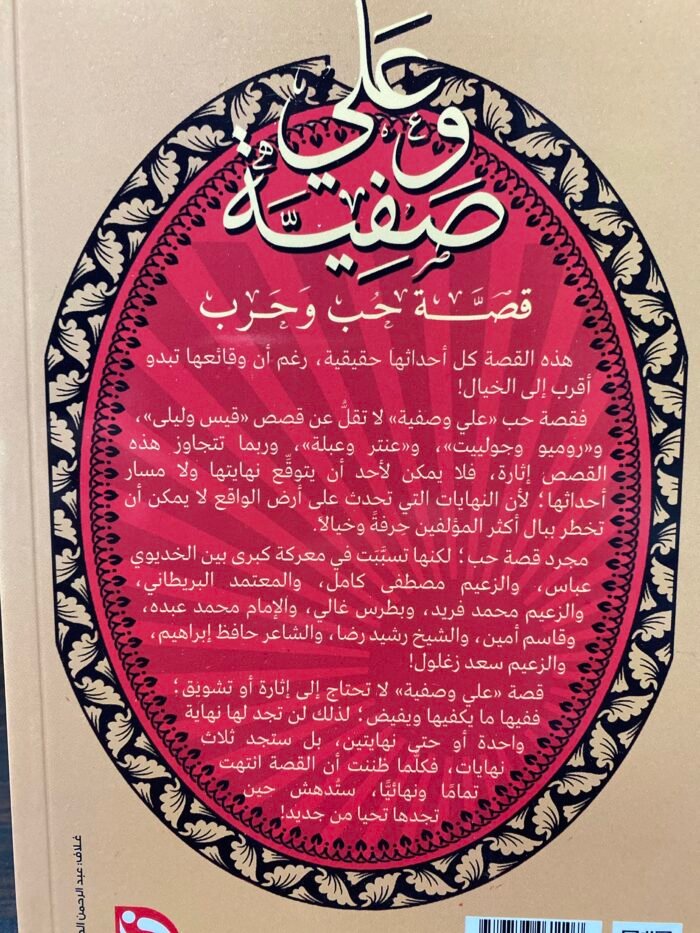 علي
و
صفية
قصة حب وحرب
هذه القصة كل أحداثها حقيقية، رغم أن وقائعها تبدو
أقرب إلى الخيال!
فقصة حب «علي وصفية» لا تقلُّ عن قصص «قيس وليلى»،
و«روميو وجولييت»، و«عنتر وعبلة»، وربما تتجاوز هذه
القصص إثارة، فلا يمكن لأحد أن يتوقَّع نهايتها ولا مسار
أحداثها؛ لأن النهايات التي تحدث على أرض الواقع لا يمكن أن
تخطر ببال أكثر المؤلفين حرفةً وخيالًا.
مجرد قصة حب؛ لكنها تسبَّبَت في معركة كبرى بين الخديوي
عباس، والزعيم مصطفى كامل، والمعتمد البريطاني،
والزعيم محمد فريد، وبطرس غالي، والإمام محمد عبده،
وقاسم أمين، والشيخ رشيد رضا، والشاعر حافظ إبراهيم،
والزعيم سعد زغلول!
قصة «علي وصفية» لا تحتاج إلى إثارة أو تشويق؛
ففيها ما يكفيها ويفيض؛ لذلك لن تجد لها نهاية
واحدة أو حتى نهايتين، بل ستجد ثلاث
نهايات، فكلَّما ظننت أن القصة انتهت
تمامًا ونهائيًّا، ستُدهش حين
تجدها تحيا من جديد!
غلاف: عبد الرحمن